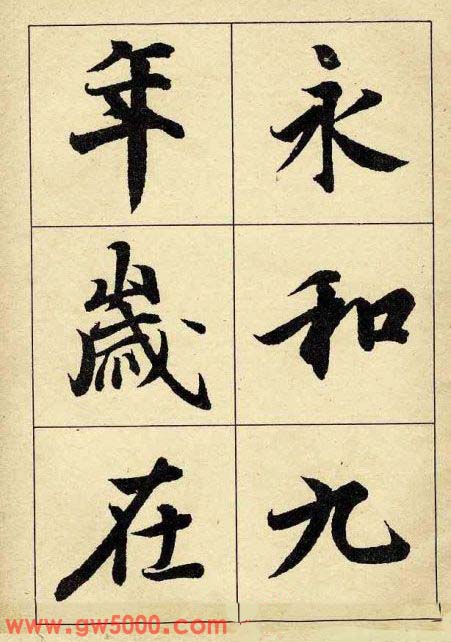 永和九
年歲在
www.gw5000.com